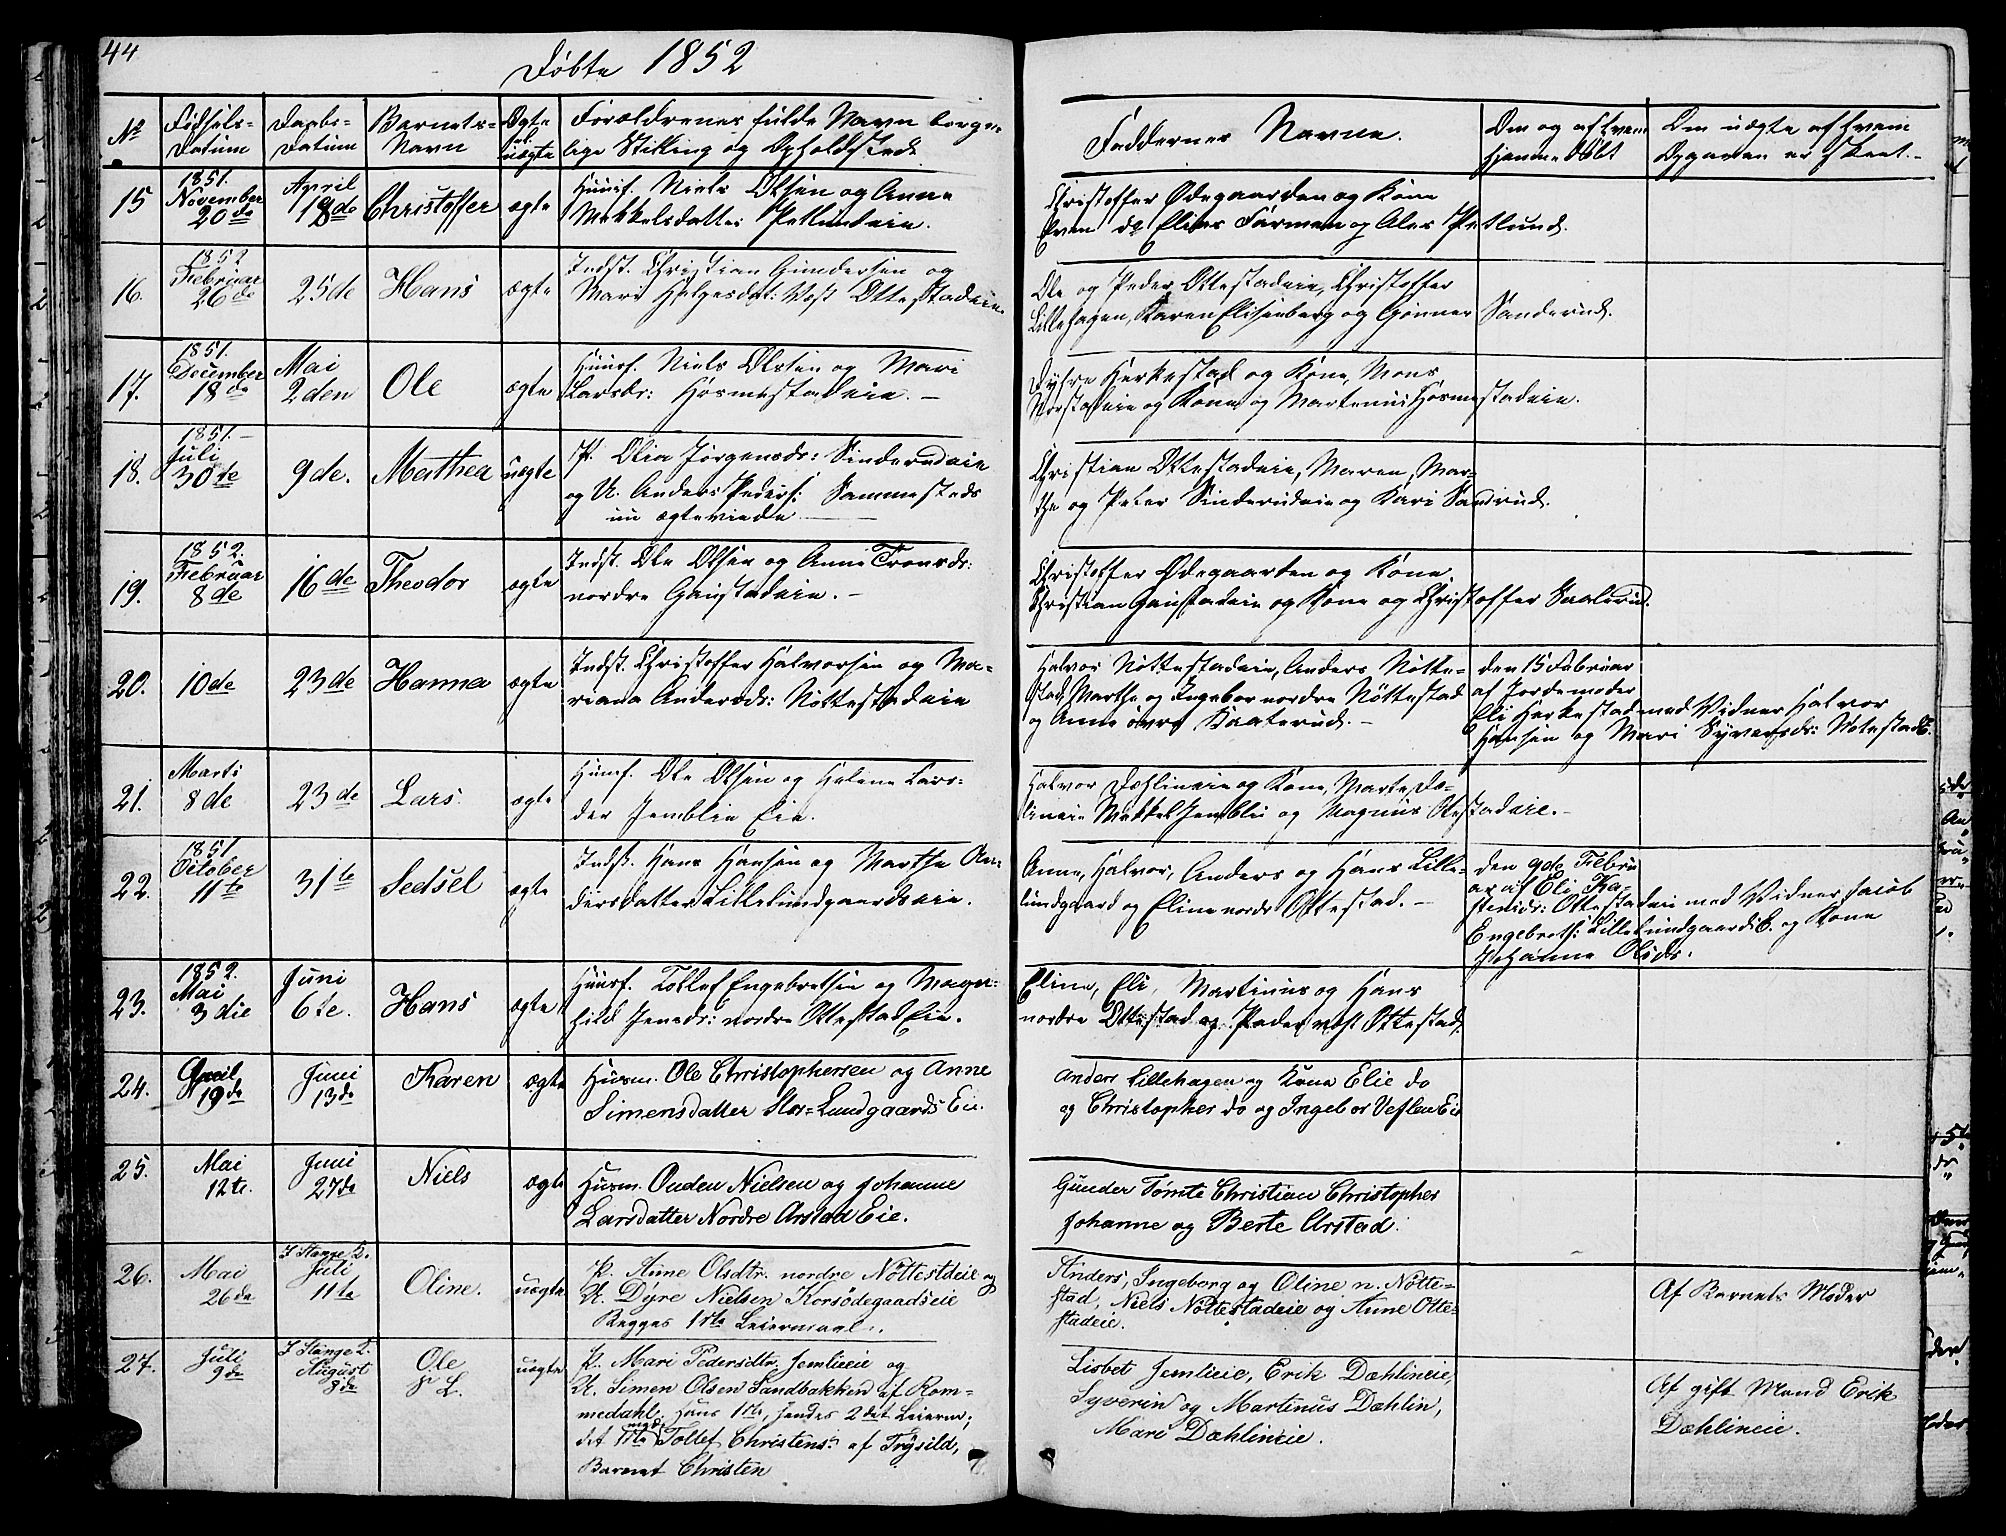 44
Døbte 1852
№ Fødsels- Daabs- Barnets- Ægte Forældrenes fulde Navn borger-
Datum Datum Navn el. uægte lige Stilling og Opholdssted.
Faddernes Navne.
Om og af hvem hjemmedøbt
Om uægte af hvem Opgaven er skeet.
15 1851. November 20de April 18de Christoffer ægte Huusm. Niels Olsen og Anne
Mekkelsdatter Petlundeie.
Christoffer Ødegaarden og Kone
Even do Elias Formoen og Ales Petlund.
16. 1852 Februar 26de 25de Hans ægte Indst. Christian Gundersen og
Mari Helgesdat: Vest Ottestadeie.
Ole og Peder Ottestadeie, Christoffer
Lillehagen, Karen Elisenberg og Gunner Sanderud.
17. 1851. December 18de Mai 2den Ole ægte Huusm. Niels Olsen og Mari
Larsdr: Horsmestadeie. –
Dyre Herkestad og Kone, Mons
Norstadeie og Kone og Martinus Horsmestadeie.
18. 1851. – Juli 30te 9de. Mathea uægte P. Olia Jørgensdr: Sinderudeie
og U. Anders Peders: Sammesteds
nu ægteviede
Christian Ottestadeie, Maren, Mar-
the og Peter Sinderudeie og Kari Sandrud.
19. 1852. Februar 8de 16de Theodor ægte Indst. Ole Olsen og Anne Tronsdr:
nordre Gaustadeie. –
Christoffer Ødegaarden og Kone
Christian Gaustadeie og Kone og Christoffer Saaterud.
20. 10de 23de Hanna ægte Indst. Christoffer Halvorsen og Ma-
riana Andersdr: Nøttestadeie
Halvor Nøttestadeie, Anders Nøtte-
stad, Marthe og Ingebor nordre Nøttestad
og Anne øvre Saaterud. –
den 15 Februar
af Jordemoder
Eli Herkestad med Vidner Halvor
Hansen og Mari Syversdr: Nøtestads:
21. Marti 8de 23de Lars ægte Huusm. Ole Olsen og Helene Lars-
der Jemblie Eie.
Halvor Dæhlineie og Kone, Marte Dæ-
lineie Mekkel Jemblie og Magnus Otestadeie. –
22. 1851 October 11te 31te Sedsel ægte Indst. Hans Hansen og Marthe An-
dersdatter Lillelundgaardseie.
Anne, Halvor, Anders og Hans Lille-
lundgaard og Eline nordr Ottestad. –
den 9de Febru
ar af Eli Ka-
stensdr: Ottestadeie med Vidner Jacob
Engebrets: Lillelundgaards E. og Kone
Johanne Olsdr.
23. 1852. Mai 3die Juni 6te. Hans ægte Huusm. Tollef Engebretsen og Magn-
hild Jensdr: nordre Ottestad Eie.
Eline, Eli, Martinus og Hans
nordre Ottestad og Peder vest Ottestad.
24. April 19de Juni 13de Karen ægte Husm. Ole Christophersen og Anne
Simensdatter Stor-Lundgaards Eie.
Anders Lillehagen og Kone Elie do
og Christopher do og Ingebor Veflen Eie
25. Mai 12te. Juni 27de Niels ægte Husm. Ouden Nielsen og Johanne
Larsdatter Nordre Arstad Eie.
Gunder Tømte Christian Christopher
Johanne og Berte Arstad.
26. Mai 26de I Stange K. Juli 11te Oline. uægte P. Anne Olsdtr. nordre Nøttestdeie og
U. Dyre Nielsen Korsødegaadseie
Begges 1ste Leiermaal.
Anders, Ingeborg og Oline n. Nøtte-
stad, Niels Nøttestadeie og Anne Otte-
stadeie.
Af Barnets Moder
27. Juli 9de I Stange K. August 8de Ole uægte P. Mari Pedersdtr. Jemlieeie og
U. Simen Olsen Sandbakken af Rom-
medahl, Hans 1ste, hendes 2det Leierm;
det 1ste med Tollef Christens: af Trysild,
Barnet Christen
Lisbet Jemlieie, Erik Dæhlineie,
Syverin og Martinus Dæhlin,
Mari Dæhlineie.
Af gift Mand Erik
Dæhlineie.